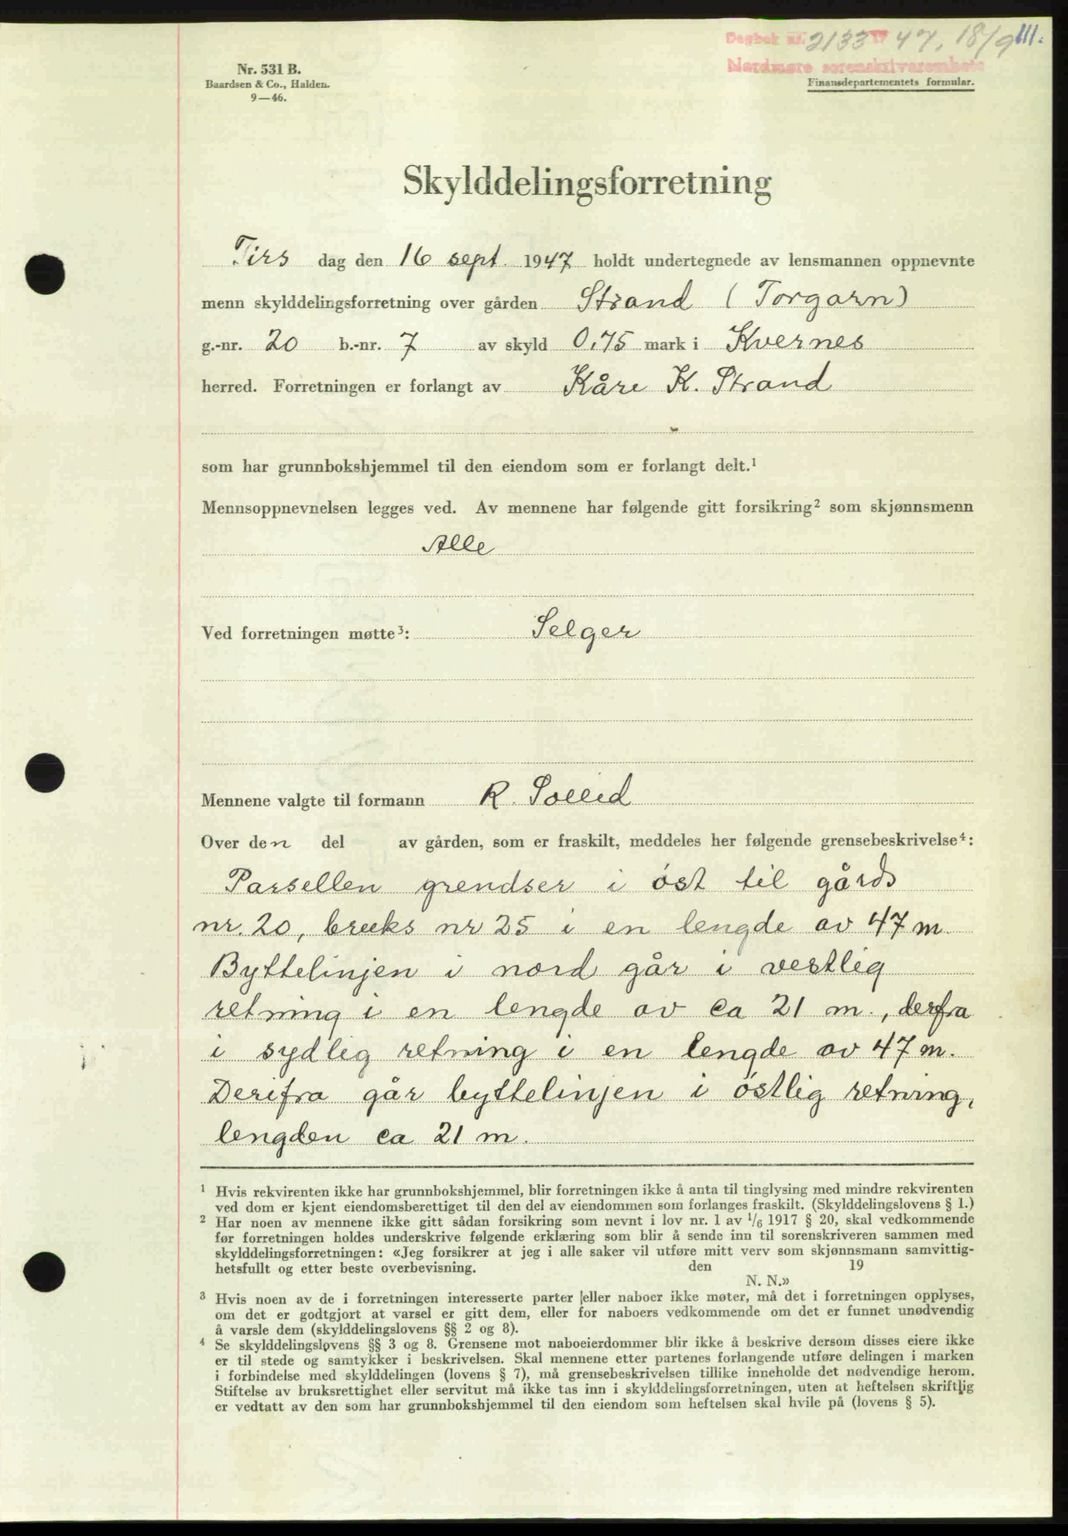 Dagbok nr. 2133 19 47, 18/9 111.
Nordmøre sorenskriverembete
Nr. 531 B.
Baardsen & Co., Halden.
9—46.
Finansdepartementets formular.
Skylddelingsforretning
Tirs dag den 16 sept. 1947 holdt undertegnede av lensmannen oppnevnte
menn skylddelingsforretning over gården Strand (Torgarn)
g.-nr. 20 b.-nr. 7 av skyld 0,75 mark i Kvernes
herred. Forretningen er forlangt av Kåre K. Strand
som har grunnbokshjemmel til den eiendom som er forlangt delt.¹
Mennsoppnevnelsen legges ved. Av mennene har følgende gitt forsikring² som skjønnsmenn
Alle
Ved forretningen møtte³: Selger
Mennene valgte til formann R. Solleid
Over den del av gården, som er fraskilt, meddeles her følgende grensebeskrivelse⁴:
Parsellen grendser i øst til gårds
nr. 20, bruks nr 25 i en lengde av 47 m.
Byttelinjen i nord går i vestlig
retning i en lengde av ca 21 m., derfra
i sydlig retning i en lengde av 47 m.
Derifra går byttelinjen i østlig retning,
lengden ca 21 m.
¹ Hvis rekvirenten ikke har grunnbokshjemmel, blir forretningen ikke å anta til tinglysing med mindre rekvirenten
ved dom er kjent eiendomsberettiget til den del av eiendommen som forlanges fraskilt. (Skylddelingslovens § 1.)
² Har noen av mennene ikke gitt sådan forsikring som nevnt i lov nr. 1 av 1/6 1917 § 20, skal vedkommende
før forretningen holdes underskrive følgende erklæring som blir å sende inn til sorenskriveren sammen med
skylddelingsforretningen: «Jeg forsikrer at jeg i alle saker vil utføre mitt verv som skjønnsmann samvittig-
hetsfullt og etter beste overbevisning. den 19
N. N.»
³ Hvis noen av de i forretningen interesserte parter (eller naboer ikke møter, må det i forretningen opplyses,
om det er godtgjort at varsel er gitt dem, eller for naboers vedkommende om det er funnet unødvendig
å varsle dem (skylddelingslovens §§ 2 og 8).
⁴ Se skylddelingslovens §§ 3 og 8. Grensene mot naboeierdommer blir ikke å beskrive dersom disses eiere ikke
er til stede og samtykker i beskrivelsen. Skal mennene etter partenes forlangende utføre delingen i marken
i forbindelse med skylddelingen (lovens § 7), må grensebeskrivelsen tillike inneholde det nødvendige herom.
Stiftelse av bruksrettighet eller servitut må ikke tas inn i skylddelingsforretningen, uten at heftelsen skriftlig
er vedtatt av den som har grunnbokshjemmel til den eiendom som heftelsen skal hvile på (lovens § 5).